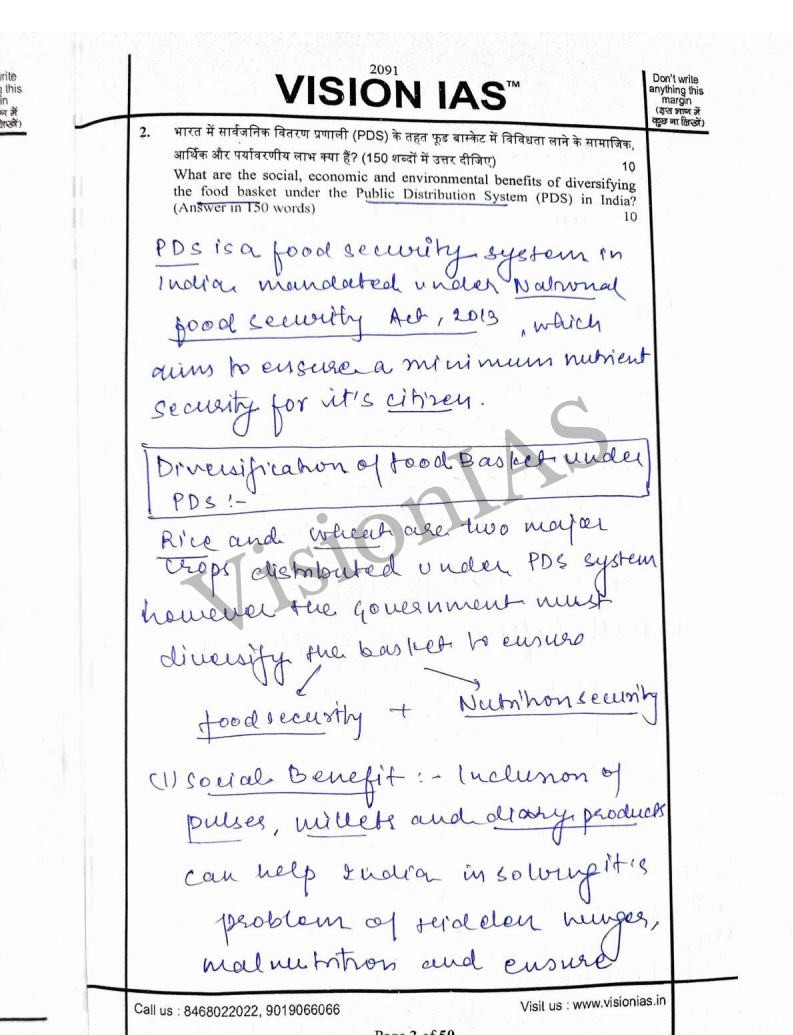 2091
VISION IAS™
rite
this
in
Don't write
anything this
margin
(इस भाग में
कुछ ना लिखें)
2. भारत में सार्वजनिक वितरण प्रणाली (PDS) के तहत फूड बास्केट में विविधता लाने के सामाजिक,
आर्थिक और पर्यावरणीय लाभ क्या हैं? (150 शब्दों में उत्तर दीजिए) 10
What are the social, economic and environmental benefits of diversifying
the food basket under the Public Distribution System (PDS) in India?
(Answer in 150 words) 10
PDS is a food security system in
India mandated under National
food security Act, 2013, which
aims to ensure a minimum nutrient
security for it's citizen.
Diversification of food Basket under
PDS :-
Rice and wheat are two major
crops distributed under PDS system
however the government must
diversify the basket to ensure
food security + Nutrition security
(1) Social Benefit :- Inclusion of
pulses, millets and diary products
can help India in solving it's
problem of hidden hunger,
malnutrition and ensure
VisionIAS
Call us : 8468022022, 9019066066
Visit us : www.visionias.in